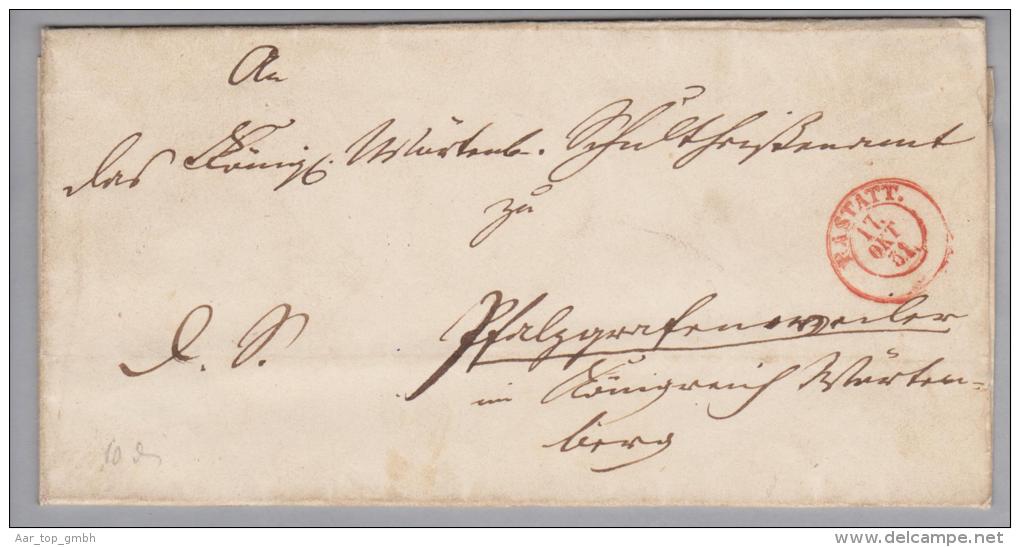 An
das Königl. Würtenb. Schultheißenamt
zu
RASTATT.
17.
OKT
51.
D. S.
Pfalzgrafenweiler
im Königreich Würten=
berg
10
Aar_top_gmbh
www.delcampe.net